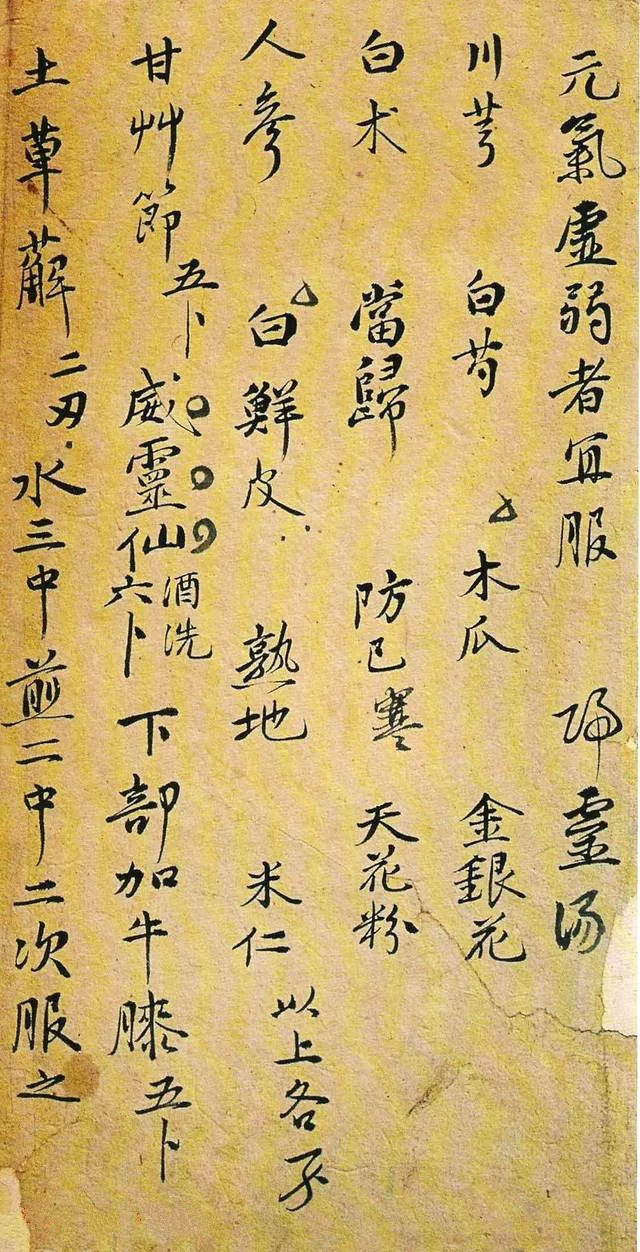 元氣虛弱者宜服 帰霊汤
川芎 白芍 木瓜 金銀花
白术 當歸 防已 天花粉
人參 白鮮皮 熟地 米仁 以上各
甘艸節五卜 威靈仙六卜酒洗 下部加牛膝五卜
土萆薢二刄 水三中煎二中二次服之